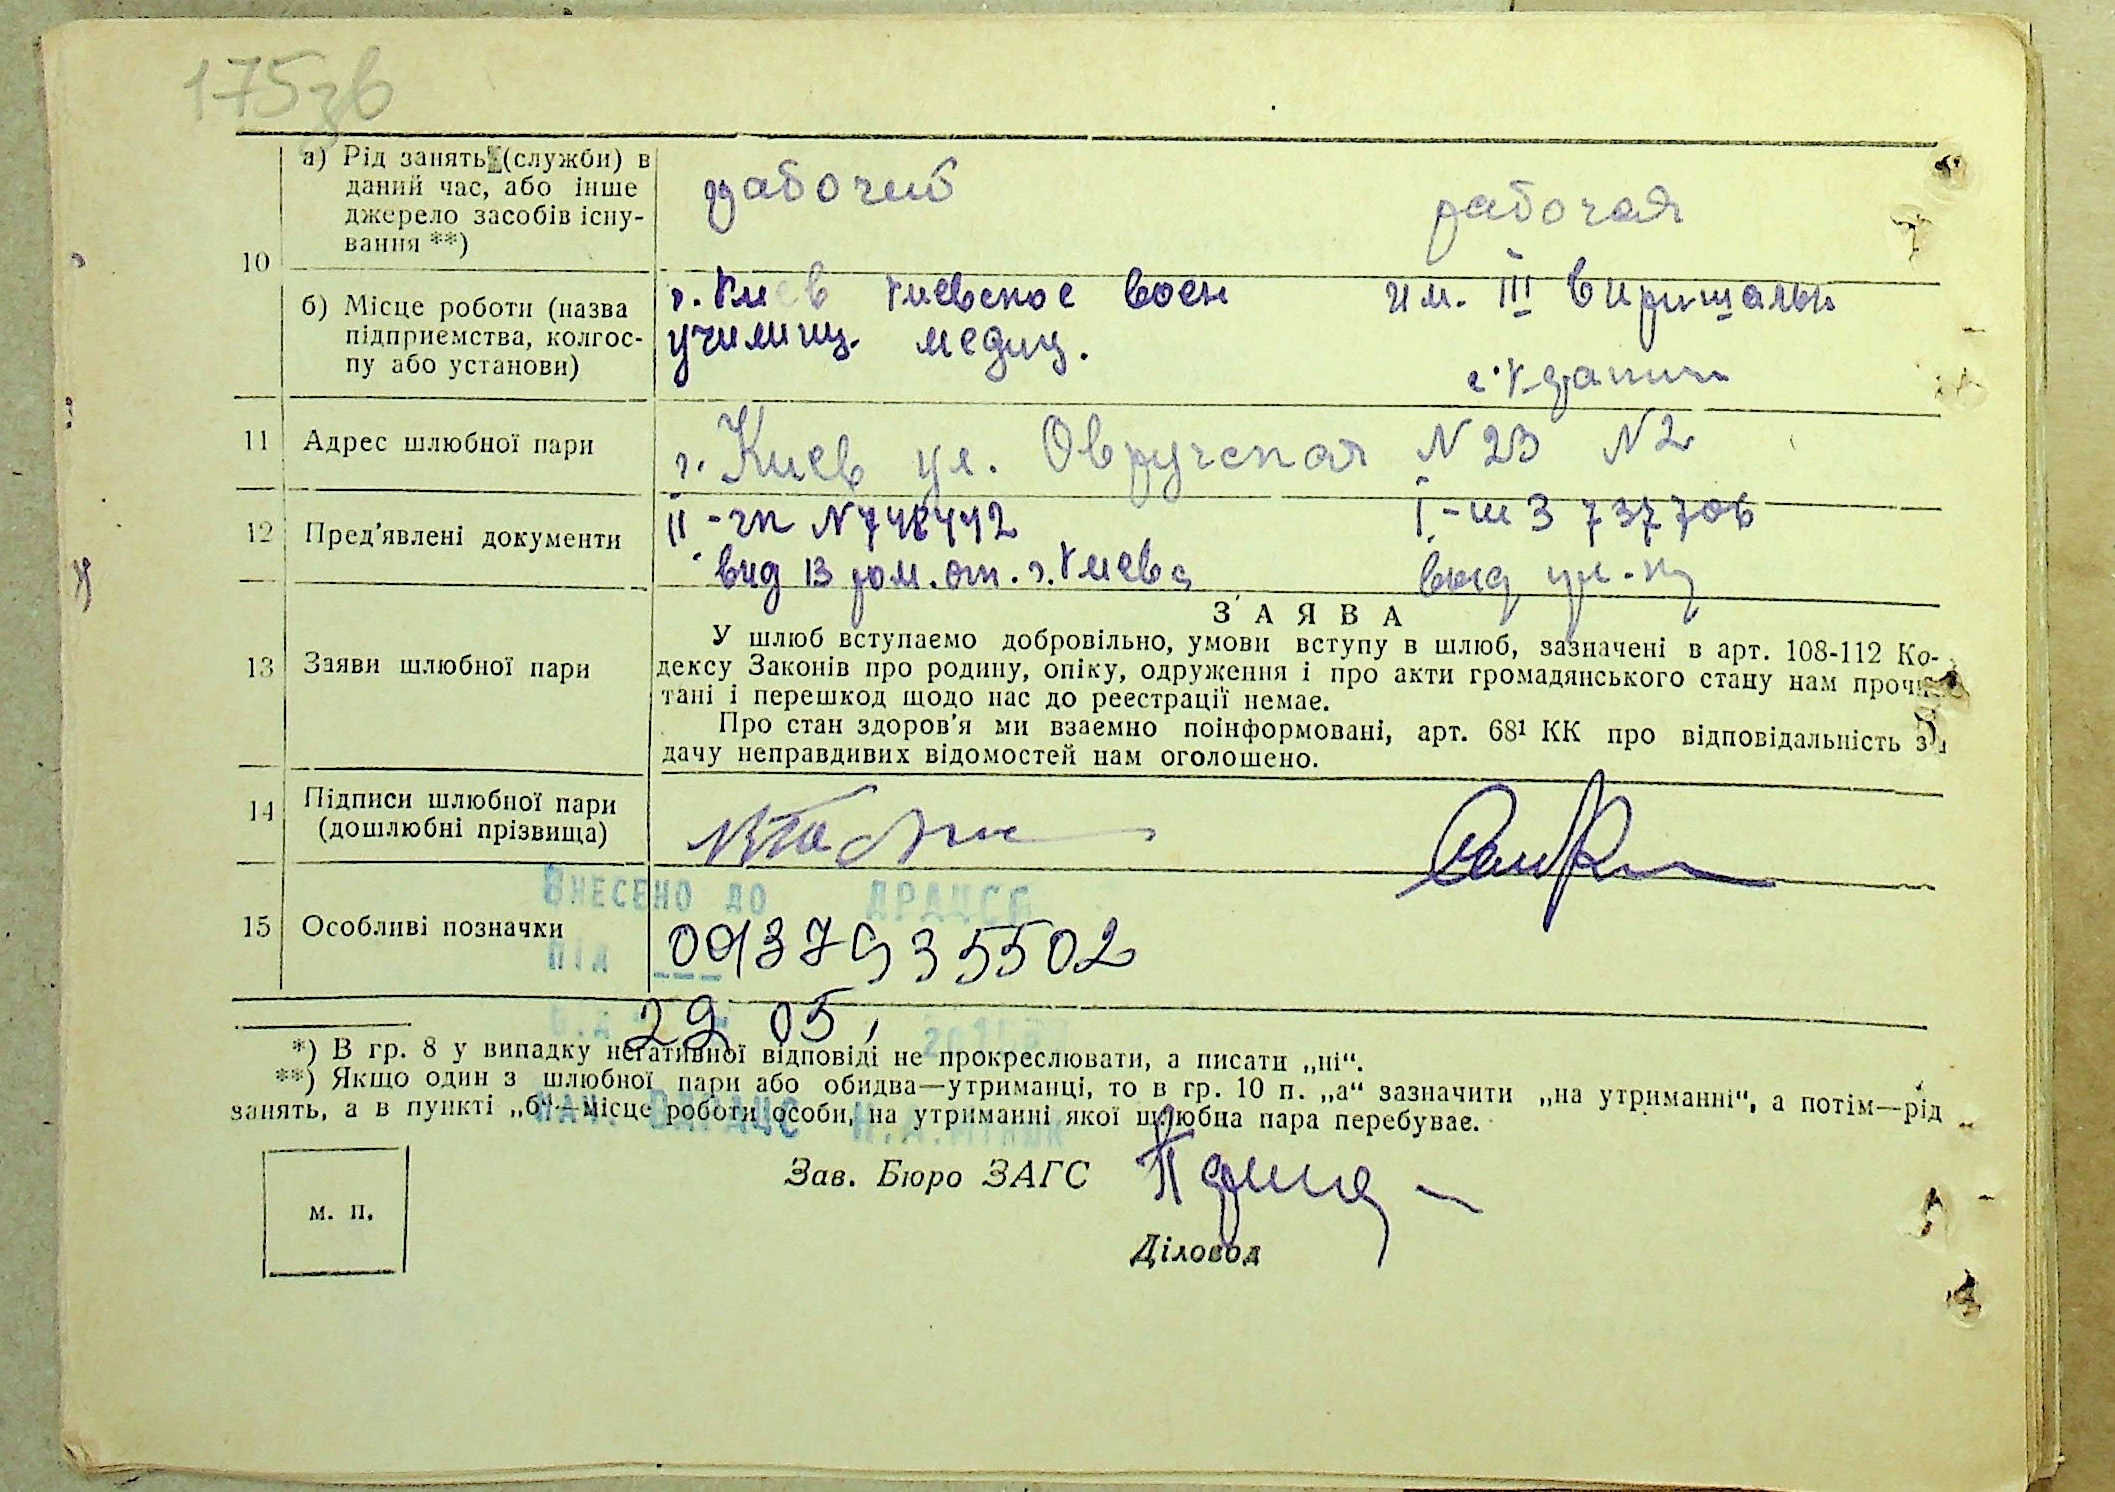 175зв
а) Рід занять (служби) в
даний час, або інше
джерело засобів існу-
вання **)
рабочий
рабочая
10
б) Місце роботи (назва
підприемства, колгос-
пу або установи)
г. Киев Киевское воен
училищ. медиц.
им. III вирішальн
11
Адрес шлюбної пари
г. Киев ул. Овручская N 23 N 2
12
Пред'явлені документи
вид 13 ром. от. г. Киева
I-ш З 737706
13
Заяви шлюбної пари
ЗАЯВА
У шлюб вступаємо добровільно, умови вступу в шлюб, зазначені в арт. 108-112 Ко-
дексу Законів про родину, опіку, одруження і про акти громадянського стану нам прочи
тані і перешкод щодо нас до реестрації немає.
Про стан здоров'я ми взаємно поінформовані, арт. 68¹ КК про відповідальність за
дачу неправдивих відомостей нам оголошено.
14
Підписи шлюбної пари
(дошлюбні прізвища)
15
Особливі позначки
Внесено до ДРАЦСГ
під 00137935502
29 05,
*) В гр. 8 у випадку негативної відповіді не прокреслювати, а писати „ні“.
**) Якщо один з шлюбної пари або обидва—утриманці, то в гр. 10 п. „а“ зазначити „на утриманні“, а потім—рід
занять, а в пункті „б“—місце роботи особи, на утриманні якої шлюбна пара перебуває.
м. п.
Зав. Бюро ЗАГС
Діловод